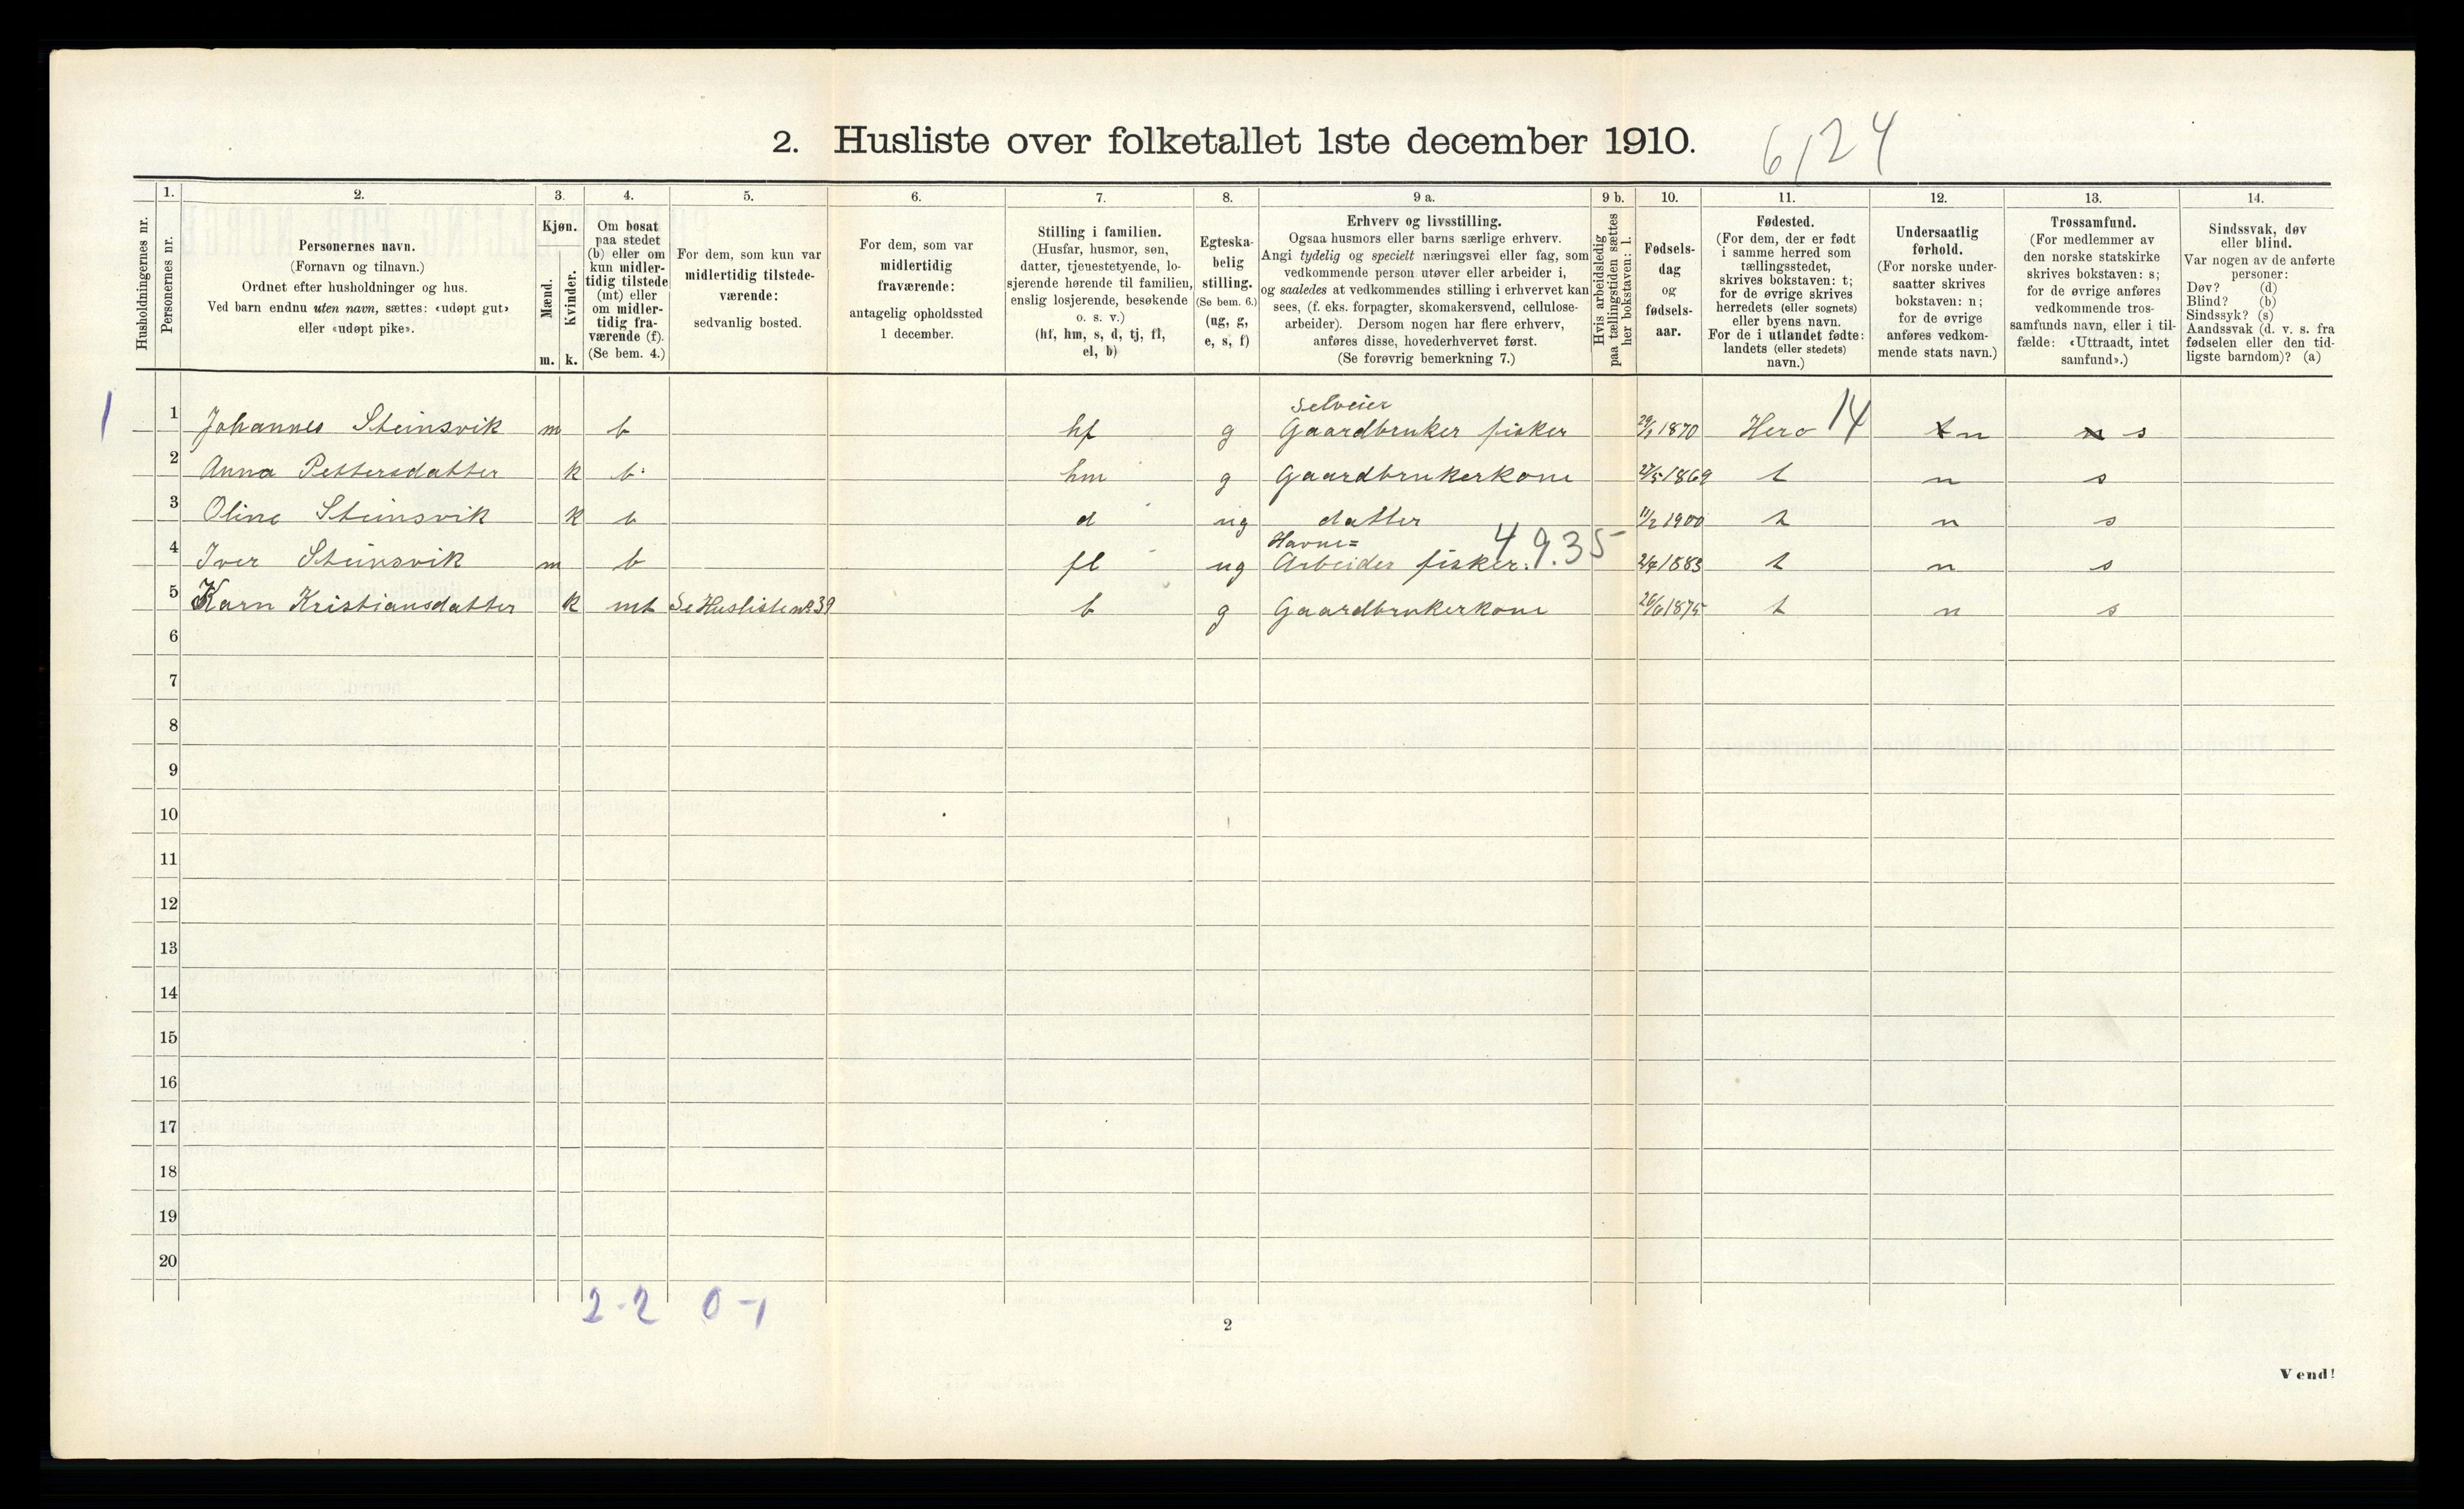 2. Husliste over folketallet 1ste december 1910.
6/24
1. 2. 3. 4. 5. 6. 7. 8. 9 a. 9 b. 10. 11. 12. 13. 14.
Husholdningernes nr.
Personernes nr.
Personernes navn.
(Fornavn og tilnavn.)
Ordnet efter husholdninger og hus.
Ved barn endnu uten navn, sættes: «udøpt gut»
eller «udøpt pike».
Kjøn.
Mænd.
Kvinder.
m. k.
Om bosat
paa stedet
(b) eller om
kun midler-
tidig tilstede
(mt) eller
om midler-
tidig fra-
værende (f).
(Se bem. 4.)
For dem, som kun var
midlertidig tilstede-
værende:
sedvanlig bosted.
For dem, som var
midlertidig
fraværende:
antagelig opholdssted
1 december.
Stilling i familien.
(Husfar, husmor, søn,
datter, tjenestetyende, lo-
sjerende hørende til familien,
enslig losjerende, besøkende
o. s. v.)
(hf, hm, s, d, tj, fl,
el, b)
Egteska-
belig
stilling.
(Se bem. 6.)
(ug, g,
e, s, f)
Erhverv og livsstilling.
Ogsaa husmors eller barns særlige erhverv.
Angi tydelig og specielt næringsvei eller fag, som
vedkommende person utøver eller arbeider i,
og saaledes at vedkommendes stilling i erhvervet kan
sees, (f. eks. forpagter, skomakersvend, cellulose-
arbeider). Dersom nogen har flere erhverv,
anføres disse, hovederhvervet først.
(Se forøvrig bemerkning 7.)
Hvis arbeidsledig
paa tællingstiden sættes
her bokstaven: l.
Fødsels-
dag
og
fødsels-
aar.
Fødested.
(For dem, der er født
i samme herred som
tællingsstedet,
skrives bokstaven: t;
for de øvrige skrives
herredets (eller sognets)
eller byens navn.
For de i utlandet fødte:
landets (eller stedets)
navn.)
Undersaatlig
forhold.
(For norske under-
saatter skrives
bokstaven: n;
for de øvrige
anføres vedkom-
mende stats navn.)
Trossamfund.
(For medlemmer av
den norske statskirke
skrives bokstaven: s;
for de øvrige anføres
vedkommende tros-
samfunds navn, eller i til-
fælde: «Uttraadt, intet
samfund».)
Sindssvak, døv
eller blind.
Var nogen av de anførte
personer:
Døv? (d)
Blind? (b)
Sindssyk? (s)
Aandssvak (d. v. s. fra
fødselen eller den tid-
ligste barndom)? (a)
Selveier
1 1 Johannes Steinsvik m b hf g Gaardbruker fisker 1870 Hero 14 t n n s
2 Anna Pettersdatter k b hm g Gaardbrukerkone 27/5 1869 t n s
3 Oline Steinsvik k b d ug datter 11/2 1900 t n s
Havne= 4 9.35
4 Iver Steinsvik m b fl ug Arbeider fisker. 2/4 1883 t n s
5 Karn Kristiansdatter k mt Se Husliste nr 39 b g Gaardbrukerkone 26/6 1875 t n s
6
7
8
9
10
11
12
13
14
15
16
17
18
19
20
2-2 0-1
2
Vend!